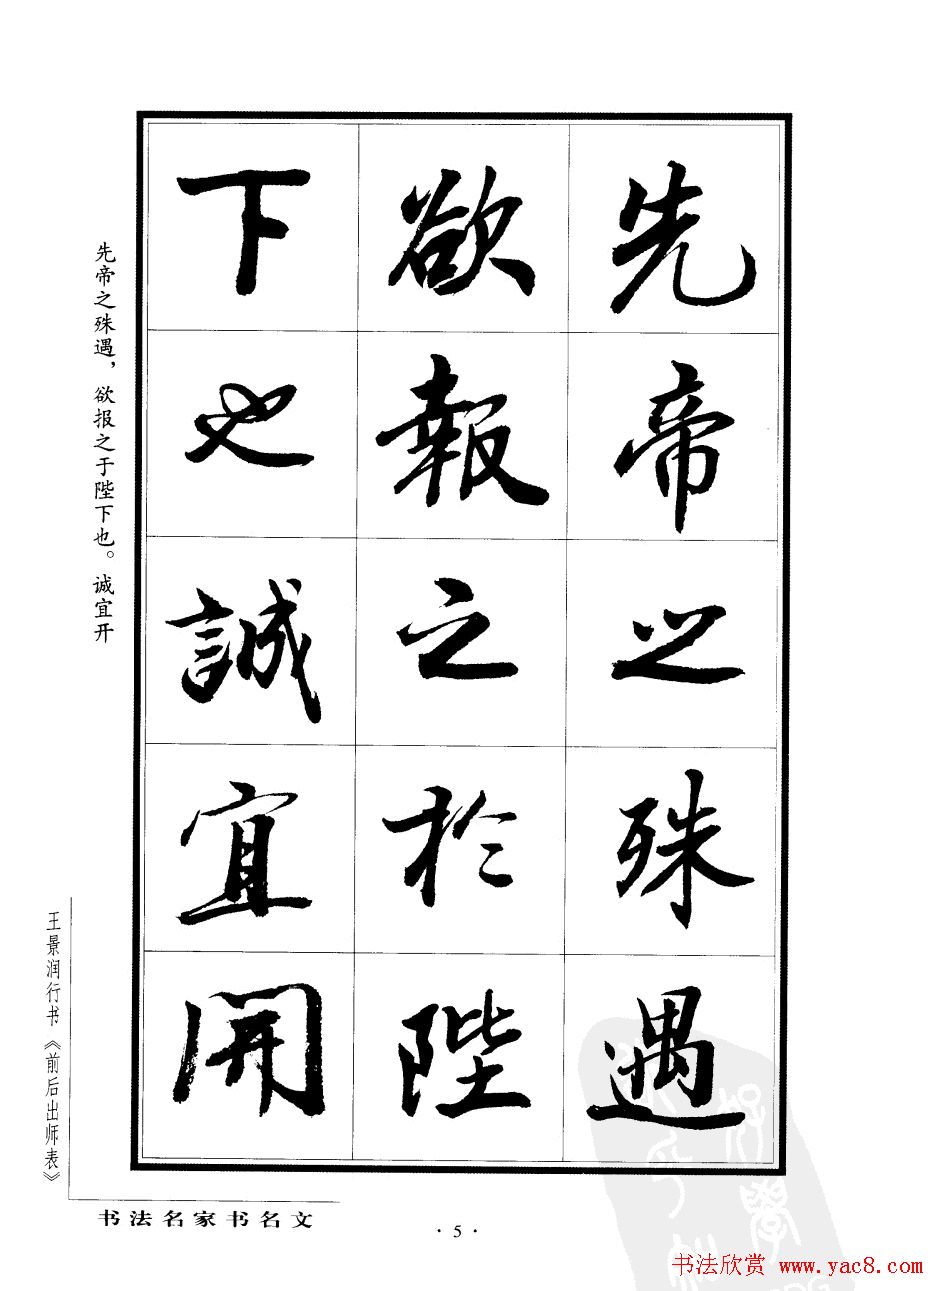 先帝之殊遇
欲報之於陛
下也誠宜開
先帝之殊遇，欲报之于陛下也。诚宜开
王景润行书《前后出师表》
书法名家书名文
·5·
书法欣赏 www.yac8.com